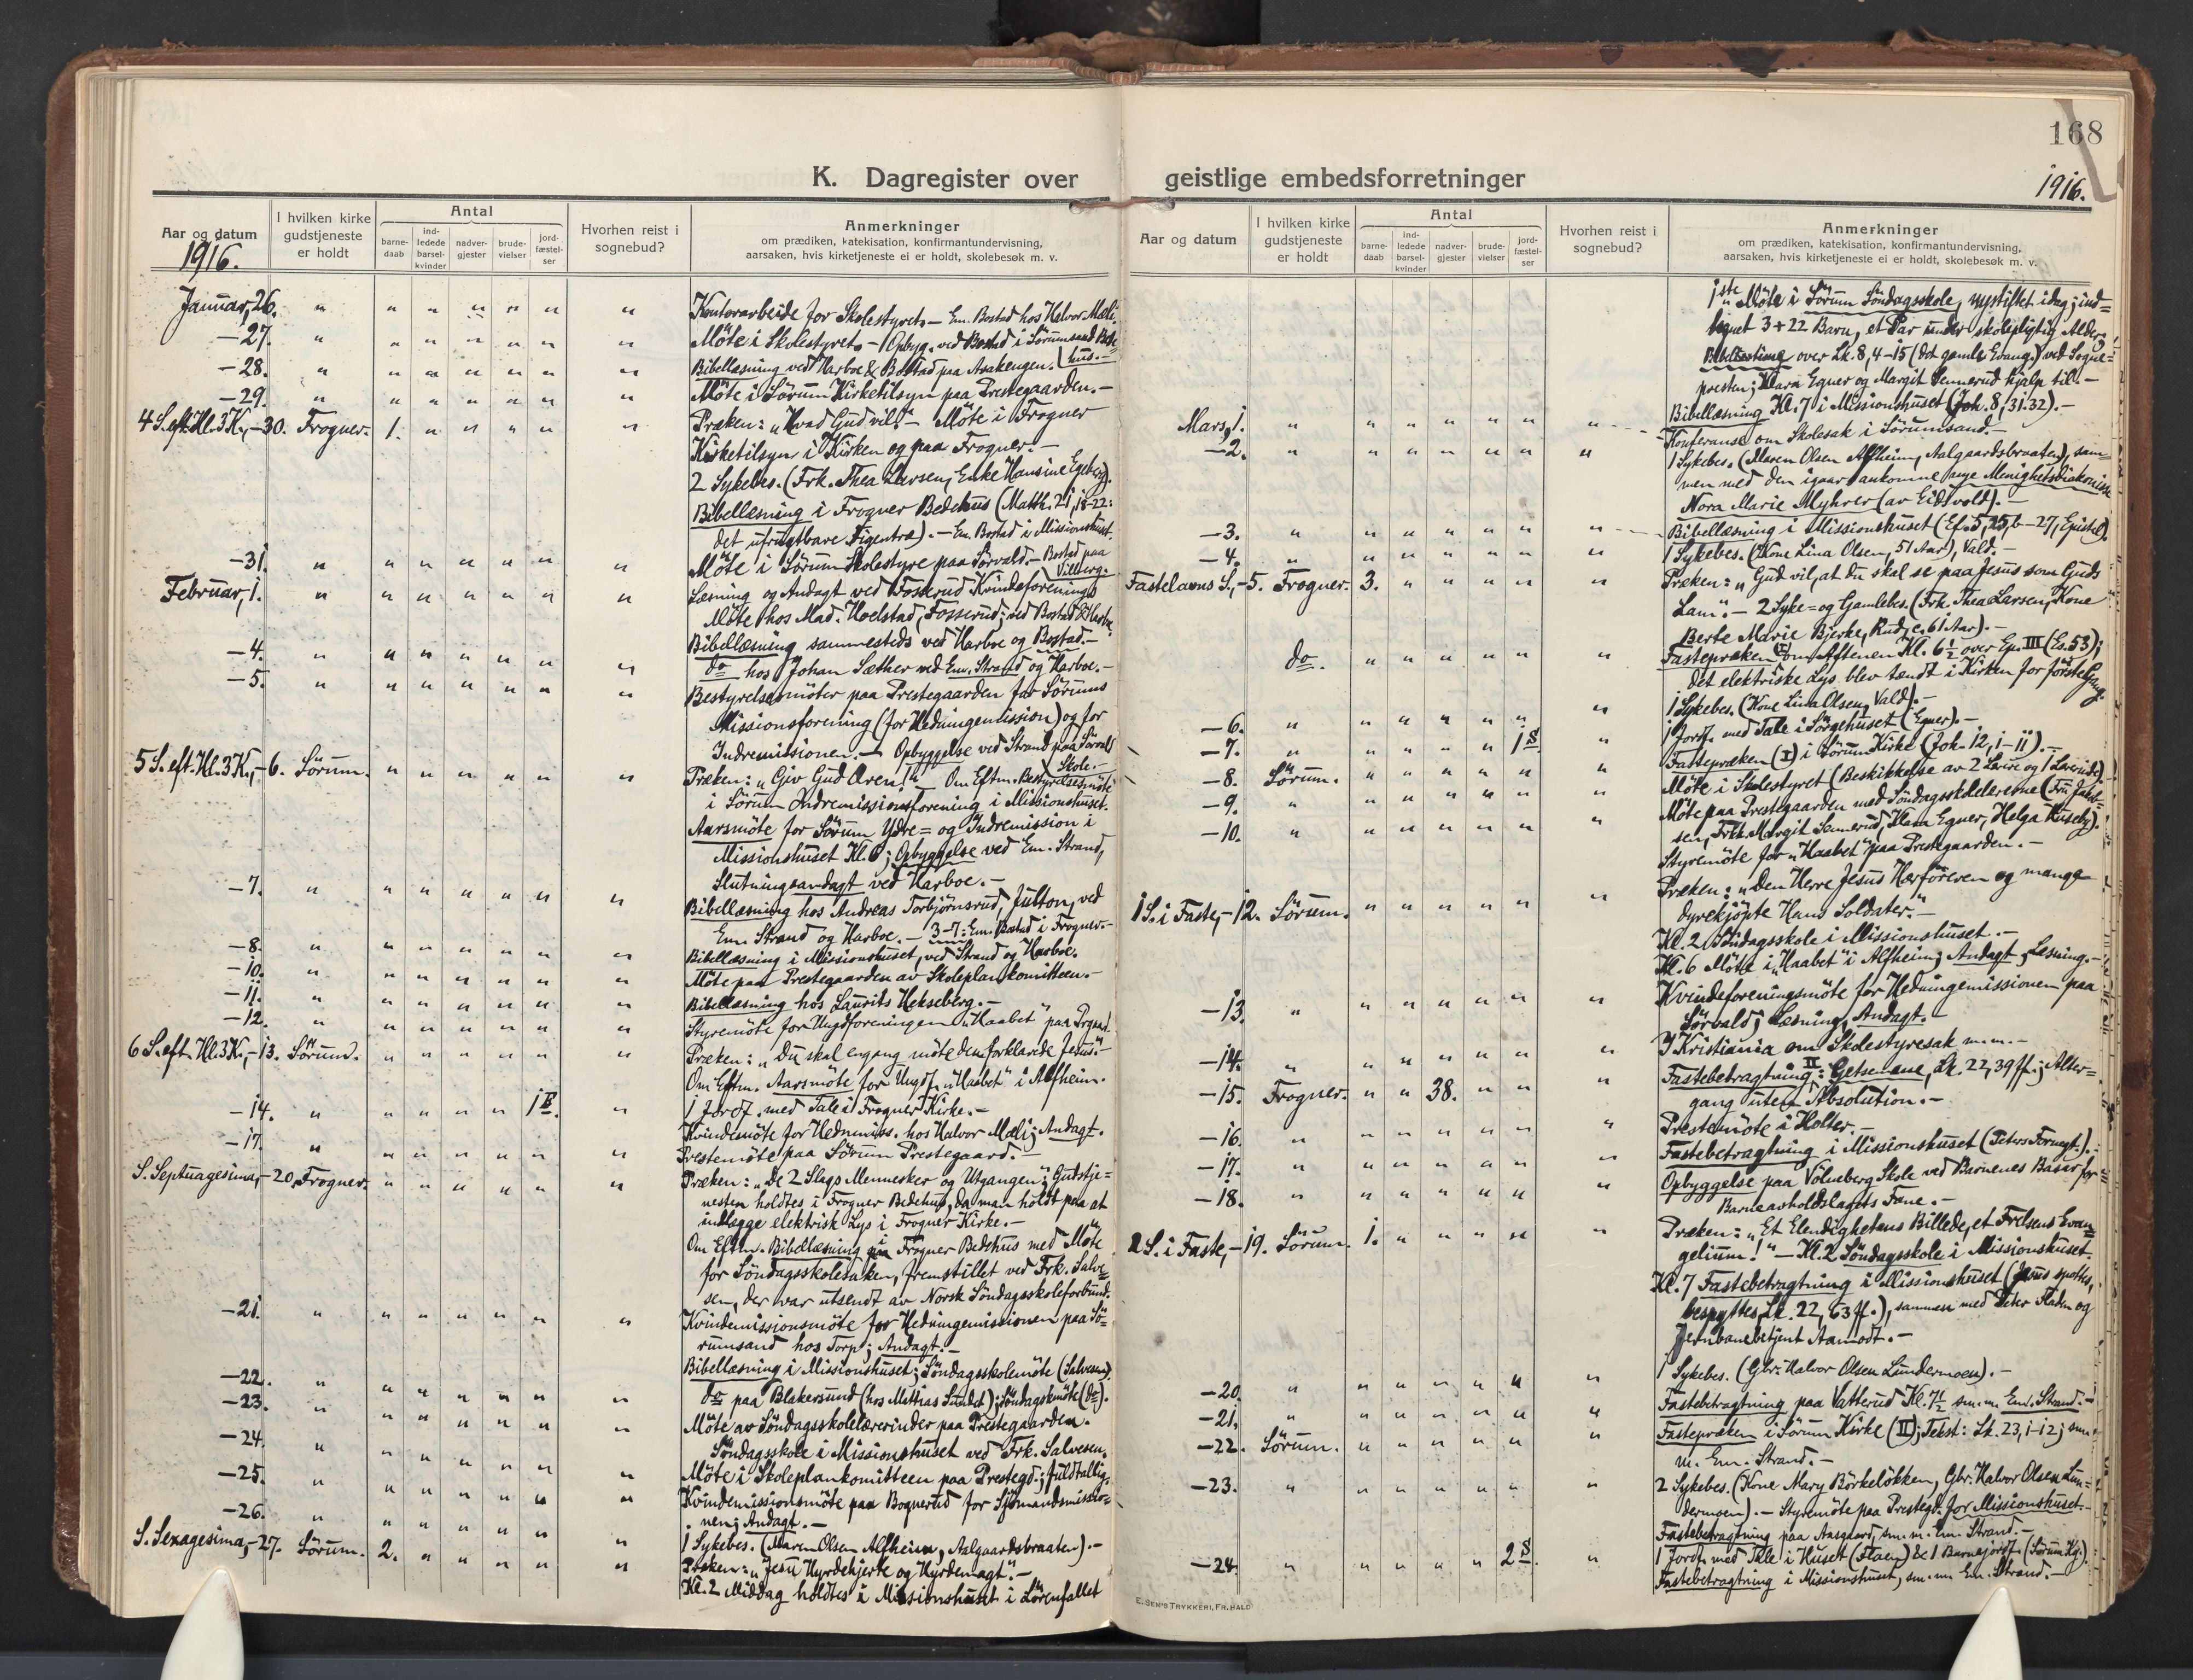 168
K. Dagregister over geistlige embedsforretninger
1916.
Aar og datum
1916.
I hvilken kirke gudstjeneste er holdt
Antal
barne-daab
ind-ledede barsel-kvinder
nadver-gjester
brude-vielser
jord-fæstel-ser
Hvorhen reist i sognebud?
Anmerkninger
om prædiken, katekisation, konfirmantundervisning,
aarsaken, hvis kirketjeneste ei er holdt, skolebesøk m. v.
Januar, 26. " " " " " " " Kontorarbeide for Skolestyret. — Em. Bostad hos Halvor Mæli.
—27. " " " " " " " Möte i Skolestyret. — 1 Opbyg. ved Bostad i Sörumsand Bede-
—28. " " " " " " " Bibellæsning ved Harboe & Bostad paa Asakengen. hus.—
—29. " " " " " " " Möte i Sörum Kirketilsyn paa Prestegaarden.—
4 S. eft. Hl. 3 K., —30. Frogner. 1. " " " " " Præken: „Hvad Gud vil." — Möte i Frogner
Kirketilsyn i Kirken og paa Frogner.—
2 Sykebes. (Frk. Thea Larsen, Enke Hansine Egeberg).
Bibellæsning i Frogner Bedehus (Matth. 21, 18-22:
det ufrugtbare Figentræ).— Em. Bostad i Missionshuset.
—31. " " " " " " " Möte i Sörum Skolestyre paa Sörvald.— Bostad paa Vilberg.
Februar, 1. " " " " " " " Læsning og Andagt ved Fosserud Kvindeforenings
Möte hos Mad. Hoelstad, Fosserud; ved Bostad & Harboe.
Bibellæsning sammesteds ved Harboe og Bostad.—
—4. " " " " " " " do hos Johan Sæther ved Em. Strand og Harboe.—
—5. " " " " " " " Bestyrelsesmöter paa Prestegaarden for Sörums
Missionsforening (for Hedningemission) og for
Indremissionen.— Opbyggelse ved Strand paa Sörvald Skole.—
5 S. eft. Hl. 3 K., —6. Sörum. " " " " " " Præken: „Giv Gud Æren!" Om Eftm. Bestyrelsesmöte
i Sörum Indremissionsforening i Missionshuset.
Aarsmöte for Sörum Ydre= og Indremission i
Missionshuset Kl. 6; Opbyggelse ved Em. Strand,
Slutningsandagt ved Harboe.—
—7. " " " " " " " Bibellæsning hos Andreas Torbjörnsrud, Julton, ved
Em. Strand og Harboe.— 3-7: Em. Bostad i Frogner.—
—8. " " " " " " " Bibellæsning i Missionshuset, ved Strand og Harboe.
—10. " " " " " " " Möte paa Prestegaarden av Skoleplankomitteen.—
—11. " " " " " " " Bibellæsning hos Laurits Hekseberg.—
—12. " " " " " " " Styremöte for Ungdforeningen „Haabet" paa Prgaad.
6 S. eft. Hl. 3 K., —13. Sörum. " " " " " " Præken: „Du skal engang möte den forklarede Jesus."—
Om Eftm. Aarsmöte for Ungdf. „Haabet" i Alfheim.
—14. " " " " " 1 B. " 1 Jordf. med Tale i Frogner Kirke.—
Kvindemöte for Hedn.miss. hos Halvor Mæli; Andagt.
—17. " " " " " " " Prestemöte paa Sörum Prestegaard.—
S. Septuagesima, —20. Frogner. " " " " " " Præken: „De 2 Slags Mennesker og Utgangen"; Gudstje=
nesten holdtes i Frogner Bedehus, da man holdt paa at
indlægge elektrisk Lys i Frogner Kirke.—
Om Eftm. Bibellæsning i Frogner Bedehus med Möte
for Söndagsskolesaken, fremstillet ved Frk. Salve=
sen, der var utsendt av Norsk Söndagsskoleforbund.
—21. " " " " " " " Kvindemissionsmöte for Hedningemissionen paa Sö=
rumsand hos Torp; Andagt.—
Bibellæsning i Missionshuset; Söndagsskolemöte (Salvesen).
—22. " " " " " " " do paa Blakersund (hos Mathias Sundet); Söndagsskmöte (do).
—23. " " " " " " " Möte av Söndagsskolelærerinder paa Prestegaarden.
Söndagsskole i Missionshuset ved Frk. Salvesen.
—24. " " " " " " " Möte i Skoleplankomitteen paa Prestegd.; fuldtallig.
—25. " " " " " " " Kvindemissionsmöte paa Bognerud for Sjömandsmissio=
nen; Andagt.—
—26. " " " " " " " 1 Sykebes. (Maren Olsen Alfheim, Aalgaardsbraaten).—
S. Sexagesima, —27. Sörum. 2. " " " " " Præken: „Jesu Hyrdehjerte og Hyrdemagt".—
Kl. 2 Middag holdtes i Missionshuset i Lörenfallet
Aar og datum
I hvilken kirke gudstjeneste er holdt
Antal
barne-daab
ind-ledede barsel-kvinder
nadver-gjester
brude-vielser
jord-fæstel-ser
Hvorhen reist i sognebud?
Anmerkninger
om prædiken, katekisation, konfirmantundervisning,
aarsaken, hvis kirketjeneste ei er holdt, skolebesøk m. v.
1ste Möte i Sörum Söndagsskole, nystiftet idag; ind=
tegnet 3+22 Barn, et Par under skolepligtig Alder;
over Lk. 8, 4-15 (det gamle Evang.) ved Sogne=
presten; Klara Egner og Margit Sennerud hjalp til.—
Bibellæsning Kl. 7 i Missionshuset (Joh. 8, 31.32).—
Mars, 1. " " " " " " " Konferanse om Skolesak i Sörumsand.—
—2. " " " " " " " 1 Sykebes. (Maren Olsen Alfheim, Aalgaardsbraaten), sam=
men med den igaar ankomne nye Menighetsdiakonisse
Nora Marie Myhrer (av Eidsvold).—
—3. " " " " " " " Bibellæsning i Missionshuset (Ef. 5, 25,b—27, Epistel).
—4. " " " " " " " 1 Sykebes. (Kone Lina Olsen, 51 Aar), Vald.—
Fastelavns S., —5. Frogner. 3. " " " " " Præken: „Gud vil, at du skal se paa Jesus som Guds
Lam".— 2 Syke= og Gamlebes. (Frk. Thea Larsen, Kone
Berte Marie Bjerke, Rud, c. 61 Aar).—
do. " " " " " " Fastepræken om Aftenen Kl. 6½ over Ep. III (Es. 53);
det elektriske Lys blev tændt i Kirken for förste Gang.
—6. " " " " " " " 1 Sykebes. (Kone Lina Olsen, Vald).—
—7. " " " " " 1 S. " 1 Jordf. med Tale i Sörgehuset (Egner).—
—8. Sörum. " " " " " " Fastepræken (I) i Sörum Kirke (Joh. 12, 1-11).—
—9. " " " " " " " Möte i Skolestyret (Beskikkelse av 2 Lærere og 1 Lærerinde).
—10. " " " " " " " Möte paa Prestegaarden med Söndagsskolelærerne (Fru Jakob=
sen, Frkn. Margit Sennerud, Klara Egner, Helga Huseby).
Styremöte for „Haabet" paa Prestegaarden.—
1 S. i Faste, —12. Sörum. " " " " " " Præken: „Den Herre Jesus Hærföreren og mange
dyrekjöpte Hans Soldater."—
Kl. 2 Söndagsskole i Missionshuset.—
Kl. 6 Möte i „Haabet" i Alfheim; Andagt, Læsning.—
—13. " " " " " " " Kvindeforeningsmöte for Hedningemissionen paa
Sörvald; Læsning, Andagt.—
—14. " " " " " " " I Kristiania om Skolestyresak m.m.—
—15. Frogner. " " 38. " " " Fastebetragtning II: Getsemane, Lk. 22, 39 ff.; Alter=
gang uten Absolution.—
—16. " " " " " " " Prestemöte i Holter.—
—17. " " " " " " " Fastebetragtning i Missionshuset (Peters Fornegt.).—
—18. " " " " " " " Opbyggelse paa Völneberg Skole ved Barnenes Basar for
Barneavholdslagets Fane.—
2 S. i Faste, —19. Sörum. 1. " " " " " Præken: „Et Elendighetens Billede, et Frelsens Evan=
gelium!"— Kl. 2 Söndagsskole i Missionshuset.
Kl. 7 Fastebetragtning i Missionshuset (Jesus spottes,
bespyttes, Lk. 22, 63 ff.), sammen med Peter Fladen og
Jernbanebetjent Aamodt.—
—20. " " " " " " " 1 Sykebes. (Gbr. Halvor Olsen Lundermoen).—
—21. " " " " " " " Fastebetragtning paa Vatterud Kl. 7½ sm. m. Em. Strand.—
—22. Sörum. " " " " " " Fastepræken i Sörum Kirke (II); Tekst: Lk. 23, 1-12; sm.
m. Em. Strand.—
—23. " " " " " " " 2 Sykebes. (Kone Mary Börkelökken, Gbr. Halvor Olsen Lun=
dermoen).— Styremöte paa Prestegd. for Missionshuset.
Fastebetragtning paa Aasgaard, sm. m. Em. Strand.—
—24. " " " " " 2 S. " 1 Jordf. med Tale i Huset (Flaen) & 1 Barnejordf. (Sörum Kg.).
Fastebetragtning i Missionshuset, sm. m. Em. Strand.—
E. SEM'S TRYKKERI, FR.HALD